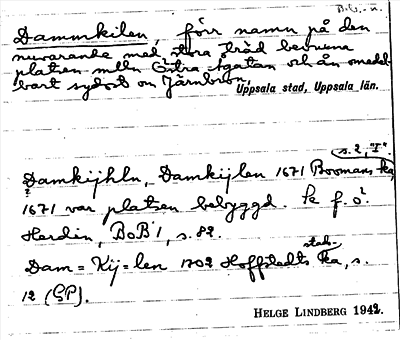 Dammkilen, förr namn på den
nuvarande med stora träd bevuxna
platsen mlln Östra Ågatan och ån omedel-
bart sydost om Järnbron.
Uppsala stad, Uppsala län.
s. 2, "I".
Damkijhln, Damkijlen 1671 Boomans ka,
1671 var platsen bebyggd. Se f. ö.
Herdin, BoB 1, s. 82.
stads-
Dam=Kij=len 1702 Hoffstedts ka, s.
12 (GP).
HELGE LINDBERG 1942.